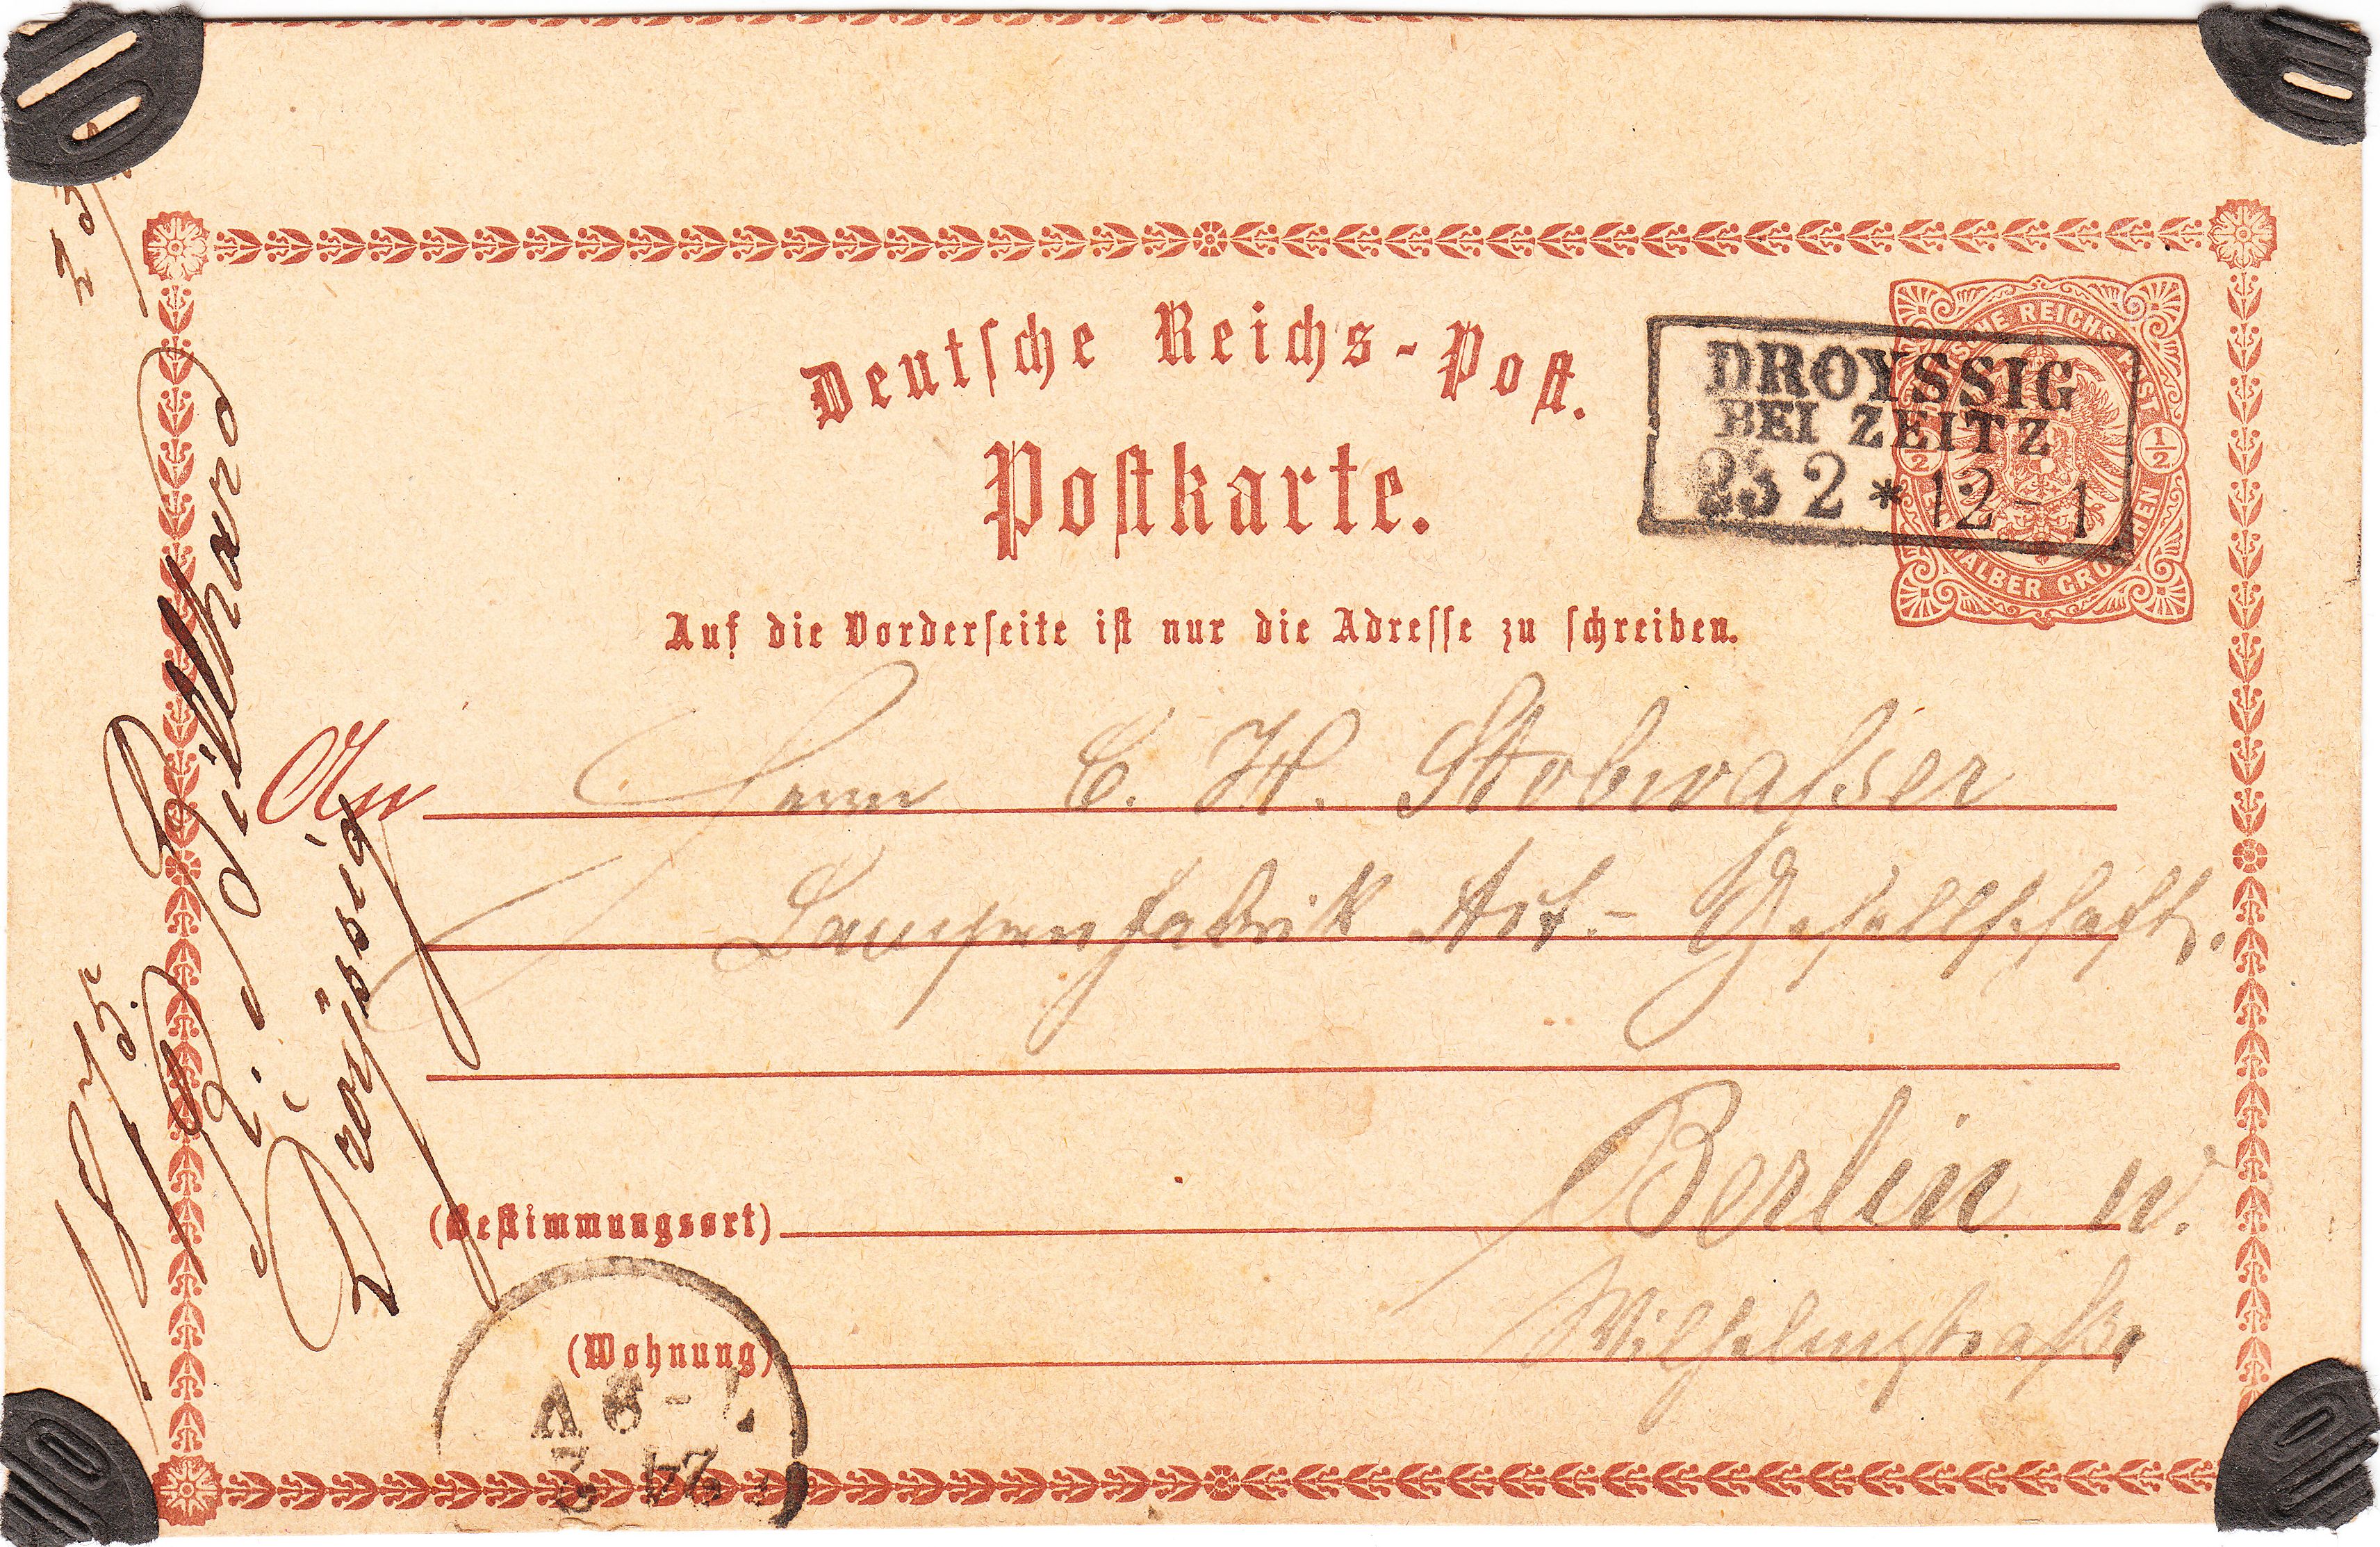 Deutsche Reichs-Post.
Postkarte.
Auf die Vorderseite ist nur die Adresse zu schreiben.
DROYSSIG
BEI ZEITZ
23 2 * 12-1
DEUTSCHE REICHS-POST
1/2
1/2
EIN HALBER GROSCHEN
An Herrn C. H. Stobwasser
Lampenfabrik Act.-Gesellschaft.
(Bestimmungsort) Berlin W.
(Wohnung) Wilhelmstraße
7-8 V
24 2
1875.
Droijssig